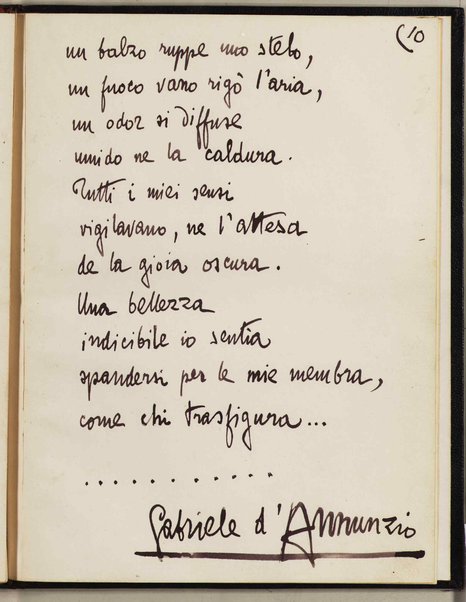 (10
un balzo ruppe uno stelo,
un fuoco vano rigò l'aria,
un odor si diffuse
umido ne la caldura.
Tutti i miei sensi
vigilavano, ne l'attesa
de la gioia oscura.
Una bellezza
indicibile io sentia
spandersi per le mie membra,
come chi trasfigura...
. . . . . . . . . . . .
Gabriele d'Annunzio